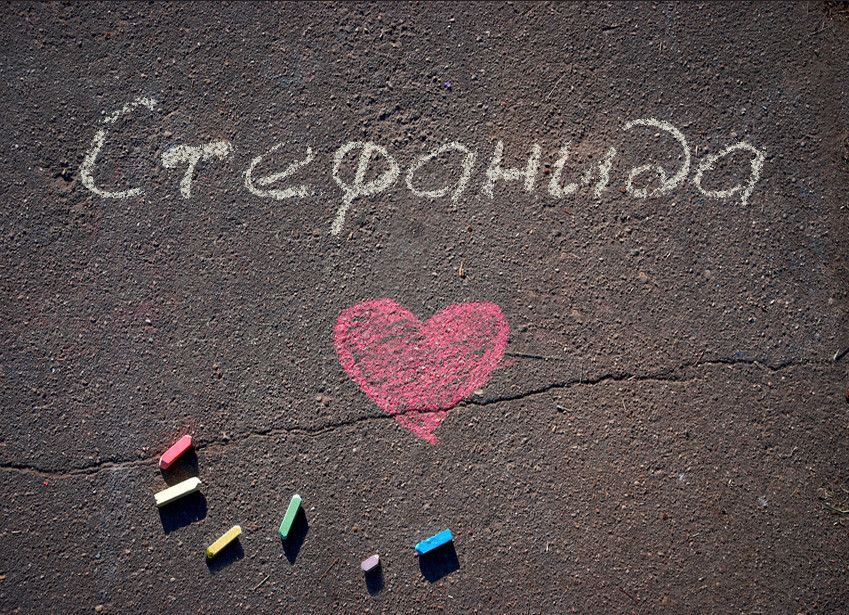 Стефанида